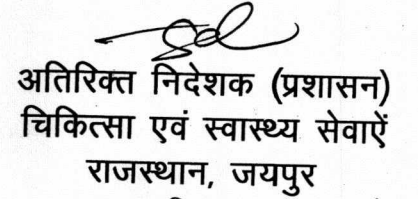 अतिरिक्त निदेशक (प्रशासन)
चिकित्सा एवं स्वास्थ्य सेवाऐं
राजस्थान, जयपुर